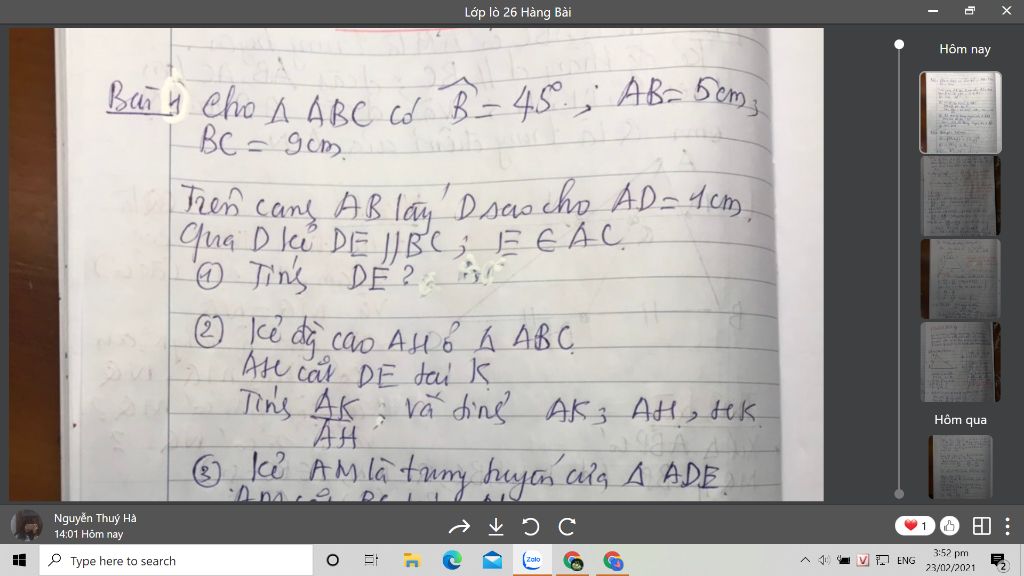 Lớp lò 26 Hàng Bài
Bài 4 Cho Δ ABC có B̂ = 45°; AB = 5cm;
BC = 9cm.
Trên cạnh AB lấy D sao cho AD = 1cm.
Qua D kẻ DE // BC; E ∈ AC.
① Tính DE?
② Kẻ đg cao AH ở Δ ABC.
AH cắt DE tại K.
Tính AK/AH; và tính AK; AH, HK
③ Kẻ AM là trung tuyến của Δ ADE.
Hôm nay
Hôm qua
Nguyễn Thuý Hà
14:01 Hôm nay
1
Type here to search
Zalo
ENG
3:52 pm
23/02/2021
2